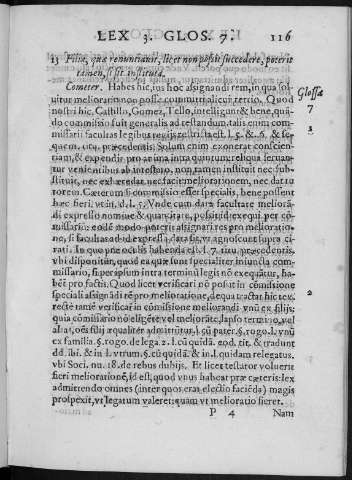 LEX 3. GLOS. 7. 116
13 Filia, quæ renuntiauit, licet non possit succedere, poterit
tamen, si sit instituta.
Cometer. Habes hic, ius hoc assignandi rem, in qua sol-
uitur melioratio non posse committi alicui tertio. Quod
nostri hic, Castillo, Gomez, Tello, intelligunt & bene, quã-
do committitur in genere
missarij facultas legibus regijs restricta est. l. 5. & 6. & se-
quem. titu. præcedentis: Solum enim exonerat conscien-
tiam, & expendit pro anima intra quintum: reliqua seruan-
tur venientibus ab intestato, non tamen instituit nec sub-
stituit, nec exheredat nec facit meliorationem, nec dat tu
torem. Cæterum si commissio esset specialis, bene possent
hæc fieri. vt in. d. l. 5. Vnde cum data facultate meliorã
di expresso nomine & quantitate, possit id exequi per cõ-
missariũ: eodẽ modo poterit assignari res pro melioratio-
ne, si facultas ad id expressa data sit, vt agnoscunt supra ci-
tati. In quo præ oculis habenda est. l. 7. titu. præcedentis.
vbi disponitur, quod ea quæ sunt specialiter iniuncta com-
missario, si per ipsum intra terminũ legis nõ exequãtur, ha-
bẽt pro factis. Quod licet verificari nõ possit in cõmissione
speciali assignãdi rẽ pro melioratione, de qua tractat hic tex.
recte tamẽ verificari in cõmissione meliorandi vnũ ex filijs:
quia cõmissario nõ eligẽte vel meliorãte, lapso termino, vel
alias, oẽs filij æqualiter admittũtur, l. cũ pater. §. rogo. l. vnũ
ex familia. §. rogo. de lega. 2. l. cũ quidã. eod. tit. & tradunt
dd. ibi. & in l. vtrum. §. cũ quidã. & in l. quidam relegatus.
vbi Soci. nu. 18. de rebus dubijs. Et licet testator voluerit
fieri meliorationẽ, id est, quod vnus habeat præ cæteris: lex
admittendo omnes (inter quos erat electio faciẽda) magis
prospexit, vt legatum valeret: quàm vt melioratio fieret.
P 4 Nam
Glossa
7
1
2